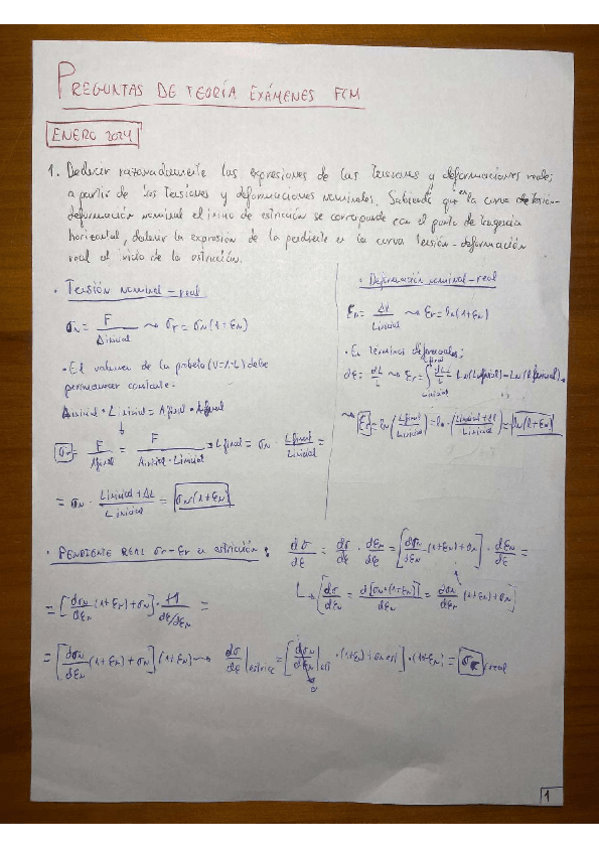 PREGUNTAS DE TEORÍA EXÁMENES FCM
ENERO 2024
1. Deducir razonadamente las expresiones de las tensiones y deformaciones reales
a partir de las tensiones y deformaciones nominales. Sabiendo que en la curva de tensión-
deformación nominal el inicio de estricción se corresponde con el punto de tangencia
horizontal, deducir la expresión de la pendiente en la curva tensión-deformación
real al inicio de la estricción.
· Tensión nominal-real
σn = F / A inicial ⇝ σr = σn(1+εn)
· El volumen de la probeta (V=A·L) debe
permanecer constante:
A inicial · L inicial = A final · L final
σr = F / A final = F / A inicial · L inicial · L final = σn · L final / L inicial =
= σn · L inicial + ΔL / L inicial = σn(1+εn)
· Deformación nominal-real
εn = ΔL / L inicial ⇝ εr = ln(1+εn)
· En términos diferenciales:
dε = dL / L ⇝ εr = ∫ L final L inicial dL / L = Ln(L final) - Ln(L inicial)
⇝ εr = ln(L final / L inicial) = ln · (L inicial + ΔL / L inicial) = ln(1+εn)
· PENDIENTE REAL σr-εr en estricción: dσ/dε = dσ/dεn · dεn/dε = [dσn/dεn · (1+εn) + σn] · dεn/dε =
↳ [dσ/dεn = d[σn·(1+εn)]/dεn = dσn/dεn (1+εn) + σn]
= [dσn/dεn (1+εn) + σn] · 1 / dε/dεn =
= [dσn/dεn (1+εn) + σn] (1+εn) ⇝ dσ/dε | estricc = [dσn/dεn | est · (1+εn) + σn est] · (1+εn) = σr real
0
1